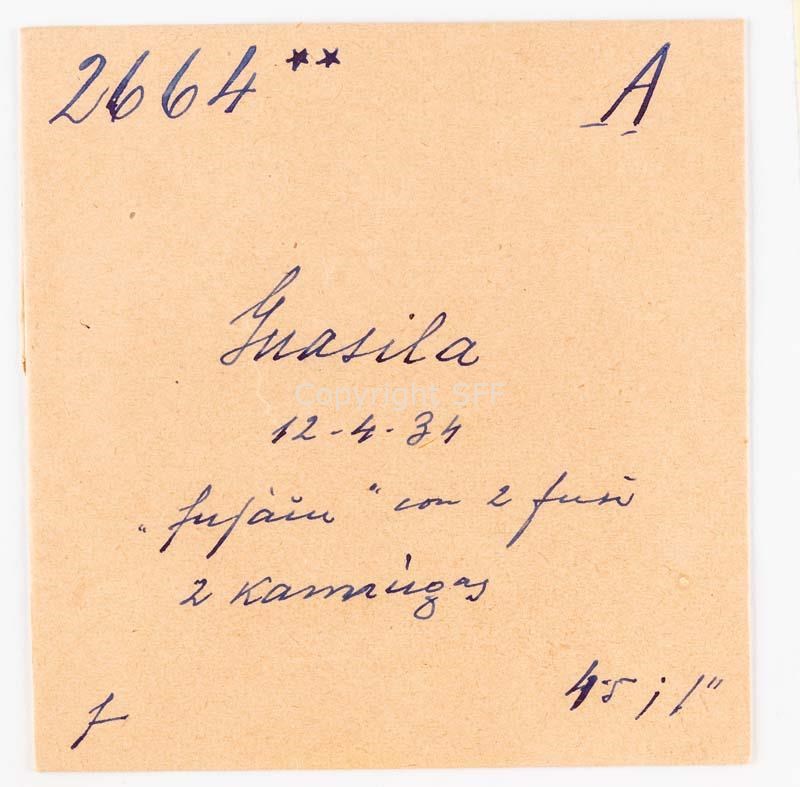 2664** A
Guasila
Copyright SFF
12-4-34
„fužáiu“ con 2 fusi
2 kannúgas
45 ; 1"
f